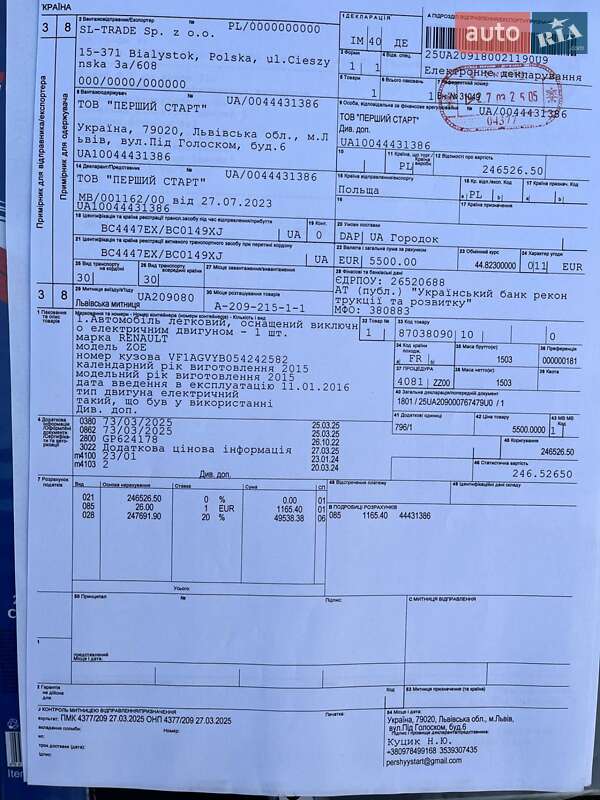 КРАЇНА
3 8
2 Вантажовідправник/Експортер № PL/0000000000
SL-TRADE Sp. z o.o.
15-371 Bialystok, Polska, ul.Cieszy
nska 3a/608
000/0000/000000
1 ДЕКЛАРАЦІЯ
ІМ 40 ДЕ
3 Форми
1 1
4 Відв. спец.
5 Товари
1
25UA209180021190U9
Електронне декларування
27 03 25 05
04377
auto RIA .com
8 Вантажоодержувач № UA/0044431386
ТОВ "ПЕРШИЙ СТАРТ"
Україна, 79020, Львівська обл., м.Л
ьвів, вул.Під Голоском, буд.6
UA10044431386
9 Особа, відповідальна за фінансове врегулювання № UA/0044431386
ТОВ "ПЕРШИЙ СТАРТ"
Див. доп.
UA10044431386
Примірник для відправника/експортера
Примірник для одержувача
PL
12 Відомості про вартість
246526.50
14 Декларант/Представник № UA/0044431386
ТОВ "ПЕРШИЙ СТАРТ"
MB/001162/00 від 27.07.2023
UA10044431386
15 Країна відправлення/експорту
Польща
PL
16 Країна походження
17 Країна призначення
18 Ідентифікація та країна реєстрації трансп.засобу під час відправлення/прибуття
BC4447EX/BC0149XJ UA
19 Конт.
0
20 Умови поставки
DAP UA Городок
21 Ідентифікація та країна реєстрації активного транспортного засобу при перетині кордону
BC4447EX/BC0149XJ UA
22 Валюта і загальна сума за рахунком
EUR 5500.00
23 Обмінний курс
44.82300000
24 Характер угоди
011 EUR
25 Вид транспорту на кордоні
30
26 Вид транспорту всередині країни
30
27 Місце завантаження/розвантаження
28 Фінансові та банківські дані
ЄДРПОУ: 26520688
АТ (публ.) "Український банк рекон
трукції та розвитку"
МФО: 380883
3 8
29 Митниця виїзду/в'їзду
UA209080
Львівська митниця
30 Місце розташування товарів
А-209-215-1-1
31 Паковання та опис товарів
Маркування та номер - Номер контейнера (номери контейнерів) - Кількість і вид
1.Автомобіль легковий, оснащений виключн
о електричним двигуном - 1 шт.
марка RENAULT
модель ZOE
номер кузова VF1AGVYB054242582
календарний рік виготовлення 2015
модельний рік виготовлення 2015
дата введення в експлуатацію 11.01.2016
тип двигуна електричний
такий, що був у використанні
Див. доп.
32 Товар №
1
33 Код товару
87038090 10 0
FR
35 Маса брутто(кг)
1503
36 Преференція
000000181
37 ПРОЦЕДУРА
4081 ZZ00
38 Маса нетто(кг)
1503
39 Квота
40 Загальна декларація/попередній документ
1801 / 25UA209000767479U0 / 1
41 Додаткові одиниці
796/1
42 Ціна товару
5500.0000
43 МВ МВ Код
1
45 Коригування
246526.50
46 Статистична вартість
246.52650
0380 73/03/2025 25.03.25
0862 73/03/2025 25.03.25
2800 GP624178 26.10.22
3022 Додаткова цінова інформація 26.03.25
m4100 23/01 23.01.24
m4103 2 20.03.24
Див. доп.
47 Розрахунок податків
Вид Основа нарахування Ставка Сума СП
021 246526.50 0 % 0.00 01
085 26.00 1 EUR 1165.40 01
028 247691.90 20 % 49538.38 06
Усього:
48 Відстрочення платежу
49 Ідентифікаційні дані складу
В ПОДРОБИЦІ РОЗРАХУНКІВ
085 1165.40 44431386
50 Принципал № Підпис:
С МИТНИЦЯ ВІДПРАВЛЕННЯ
представлений
Місце і дата:
52 Гарантія
не дійсна
для
Код
53 Митниця призначення (та країна)
J КОНТРОЛЬ МИТНИЦЕЮ ВІДПРАВЛЕННЯ/ПРИЗНАЧЕННЯ
Результат: ПМК 4377/209 27.03.2025 ОНП 4377/209 27.03.2025
Накладені пломби:
Номер:
Строк доставки (дата):
Підпис:
Печатка:
54 Місце і дата:
Україна, 79020, Львівська обл., м.Львів,
вул.Під Голоском, буд.6
Підпис і прізвище декларанта/представника:
Куцик Н.Ю.
+380978499168 3539307435
pershyystart@gmail.com